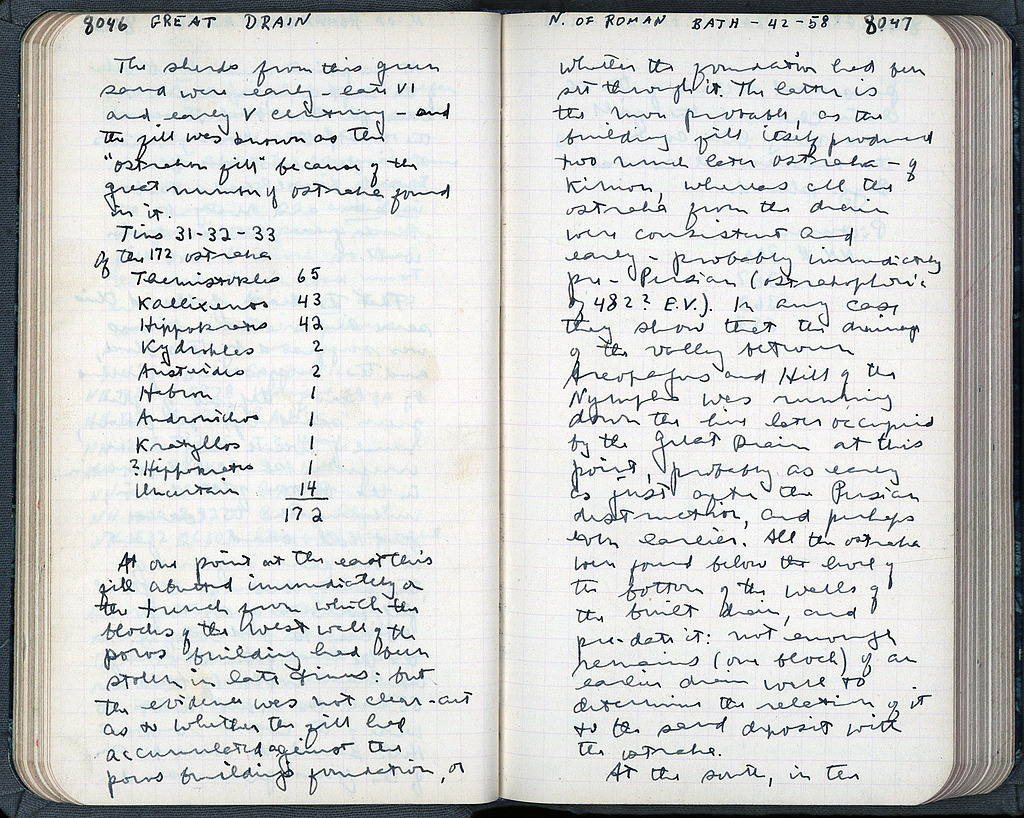 8046 GREAT DRAIN
The sherds from this green
sand were early - late VI
and early V century - and
the fill was known as the
"ostrakon fill" because of the
great number of ostraka found
in it.
Tins 31-32-33
Of the 172 ostraka
Themistokles 65
Kallixenos 43
Hippokrates 42
Kydrokles 2
Aristeides 2
Habron 1
Andronichos 1
Kratyllos 1
? Hippokrates 1
Uncertain 14
172
At one point at the east this
fill abutted immediately on
the trench from which the
blocks of the west wall of the
poros building had been
stolen in late times: but
the evidence was not clear-cut
as to whether the fill had
accumulated against the
poros building's foundation, or
N. OF ROMAN BATH - 42-58 8047
whether the foundation had been
set through it. The latter is
the more probable, as the
building fill itself produced
two much later ostraka - of
Kimon, whereas all the
ostraka from the drain
were consistent and
early - probably immediately
pre-Persian (ostrakophoria
of 482? E.V.). In any case
they show that the drainage
of the valley between
Areopagus and Hill of the
Nymphs was running
down the line later occupied
by the Great Drain at this
point, probably as early
as just after the Persian
destruction, and perhaps
even earlier. All the ostraka
were found below the level of
the bottom of the walls of
the built drain, and
pre-date it: not enough
remains (one block) of an
earlier drain wall to
determine the relation of it
to the sand deposit with
the ostraka.
At the south, in the